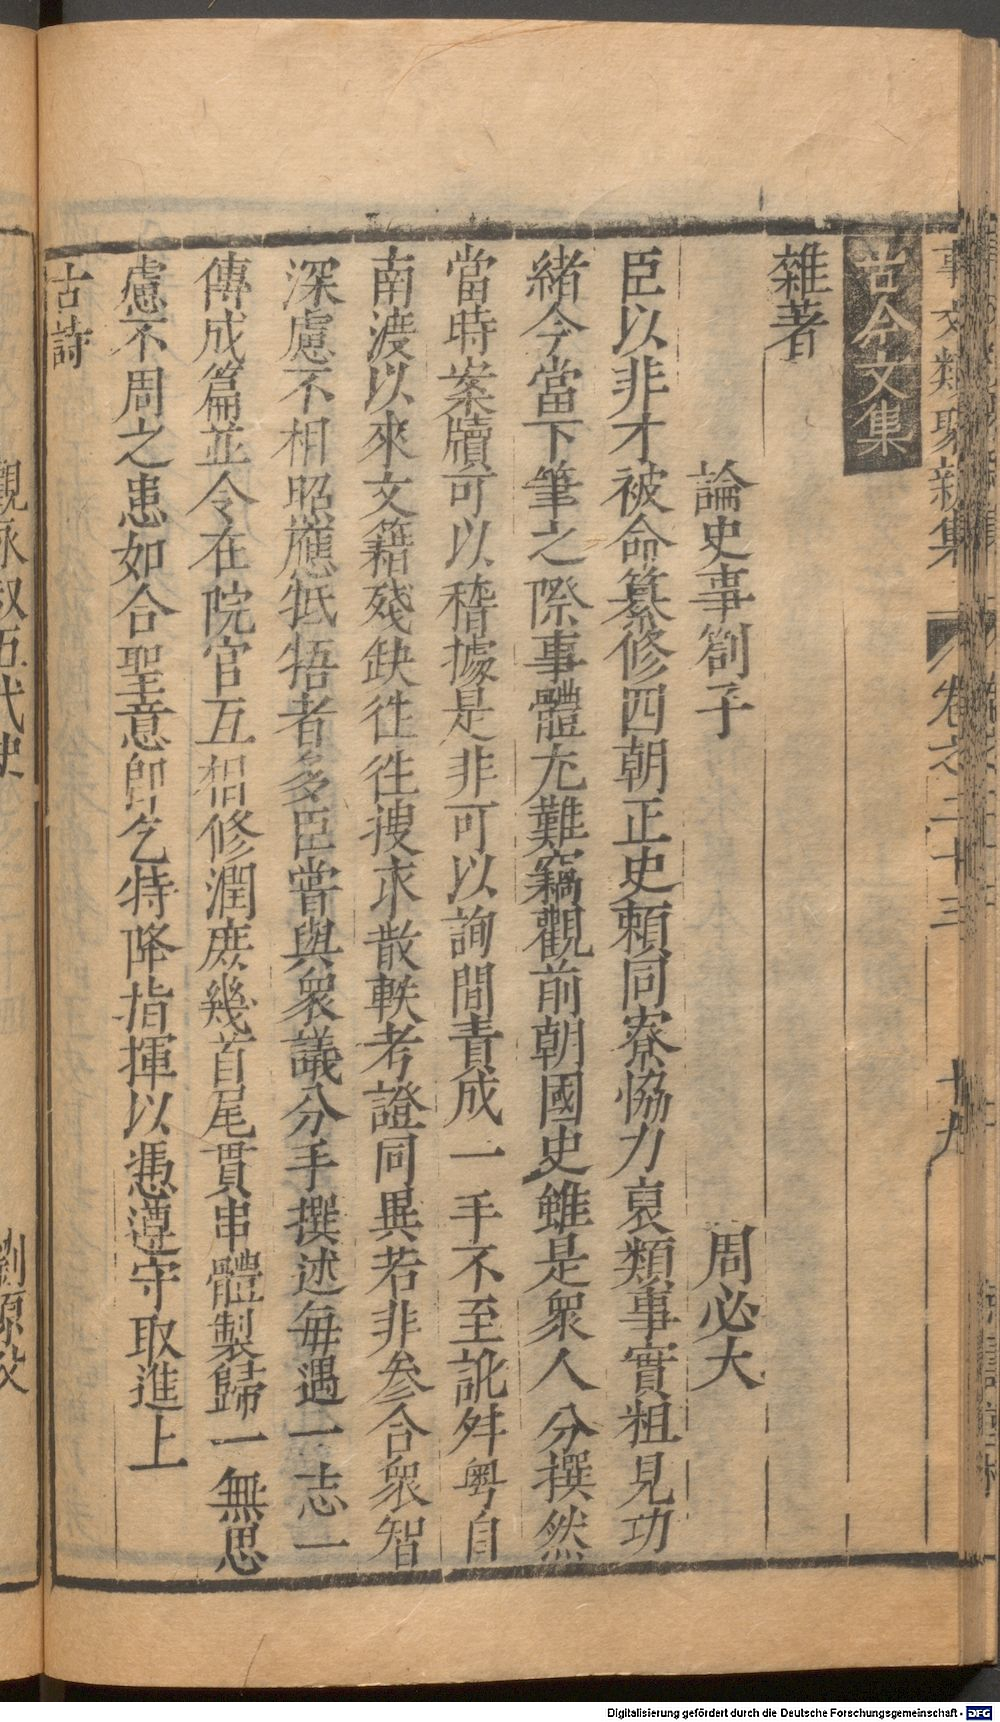 事文類聚新集 卷之三十三 十九
古今文集
雜著
論史事劄子 周必大
臣以非才被命纂修四朝正史賴同寮協力裒類事實粗見功
緒今當下筆之際事體尤難竊觀前朝國史雖是衆人分撰然
當時案牘可以稽據是非可以詢問責成一手不至訛舛粤自
南渡以來文籍殘缺徃徃搜求散軼考證同異若非参合衆智
深慮不相照應牴牾者多臣嘗與衆議分手撰述每遇一志一
傳成篇並令在院官互相修潤庶幾首尾貫串體製歸一無思
慮不周之患如合聖意卽乞特降指揮以憑遵守取進上
古詩
觀永叔五代史 劉原父
Digitalisierung gefördert durch die Deutsche Forschungsgemeinschaft - DFG